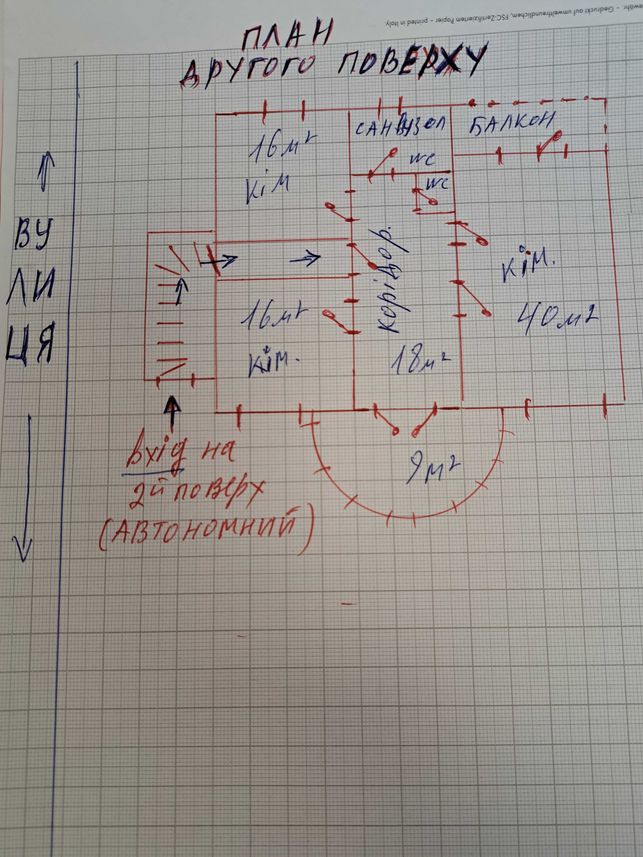 ewähr. - Gedruckt auf umweltfreundlichem, FSC-Zertifizierten Papier - printed in Italy
ПЛАН
ДРУГОГО ПОВЕРХУ
16м²
кім
САНВУЗОЛ
БАЛКОН
wc
wc
ВУ
ЛИ
ЦЯ
корідор.
кім.
40м²
16м²
кім.
18м²
9м²
Вхід на
2й поверх
(АВТОНОМНИЙ)